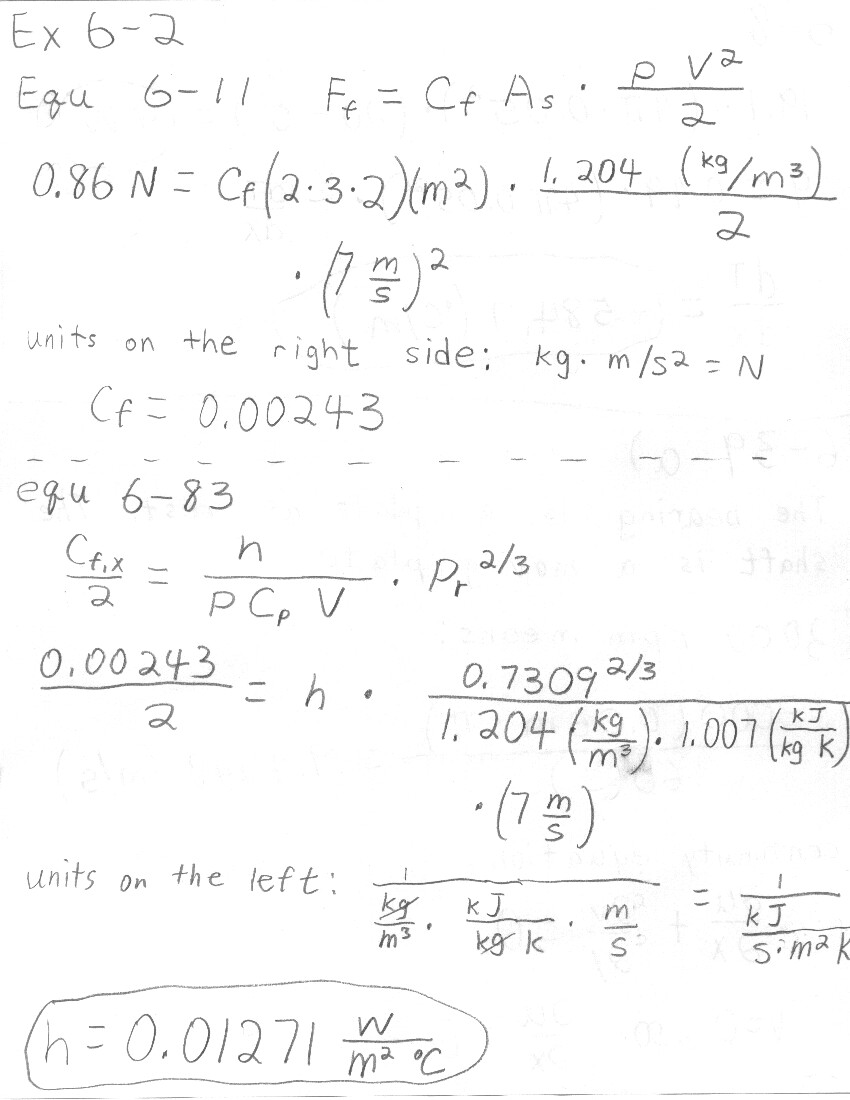 Ex 6-2
Equ 6-11 F_f = C_f A_s · ρ V² / 2
0.86 N = C_f (2·3·2)(m²) · 1.204 (kg/m³) / 2
· (7 m/s)²
units on the right side: kg·m/s² = N
C_f = 0.00243
equ 6-83
C_f,x / 2 = h / (ρ C_p V) · P_r^2/3
0.00243 / 2 = h · 0.7309^2/3 / 1.204 (kg/m³) · 1.007 (kJ/kg K)
· (7 m/s)
units on the left: 1 / (kg/m³ · kJ/kg K · m/s) = 1 / (kJ / s·m² K)
h = 0.01271 W / m² °C